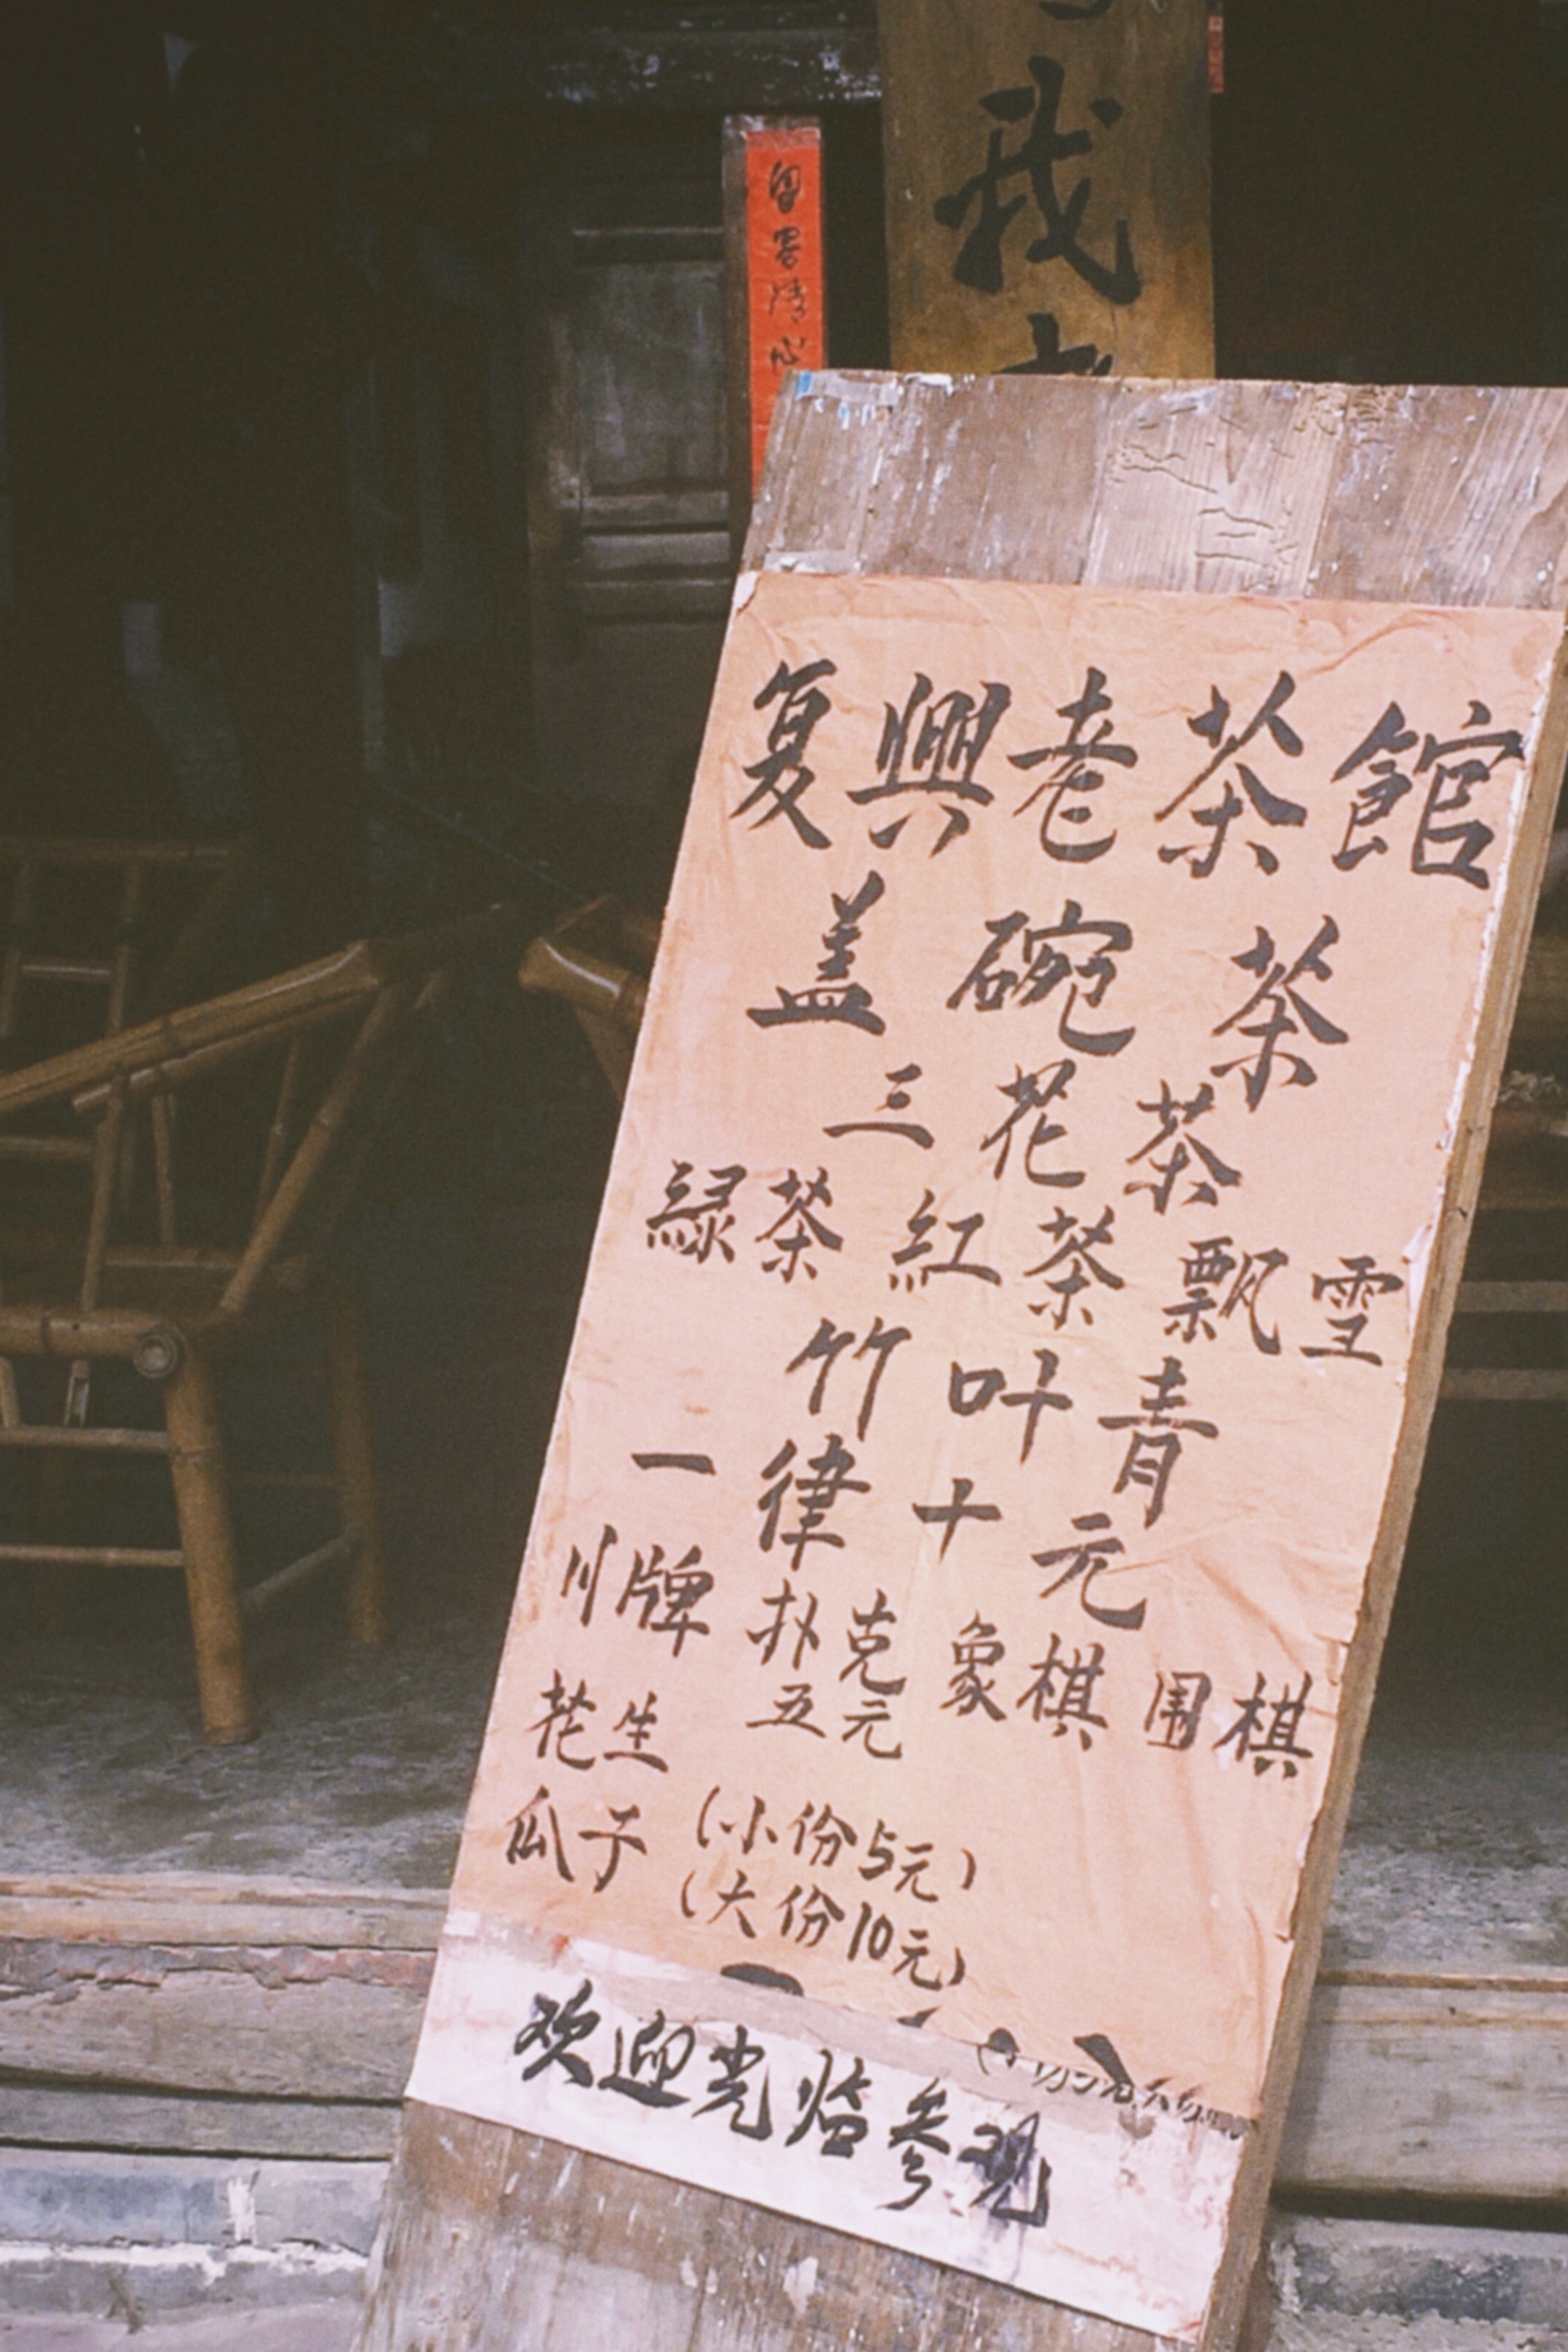 我
清心
复興老茶館
盖碗茶
三花茶
緑茶 紅茶 飘雪
竹叶青
一律十元
川牌 扑克 象棋 围棋
五元
花生
瓜子 (小份5元)
(大份10元)
欢迎光临参观